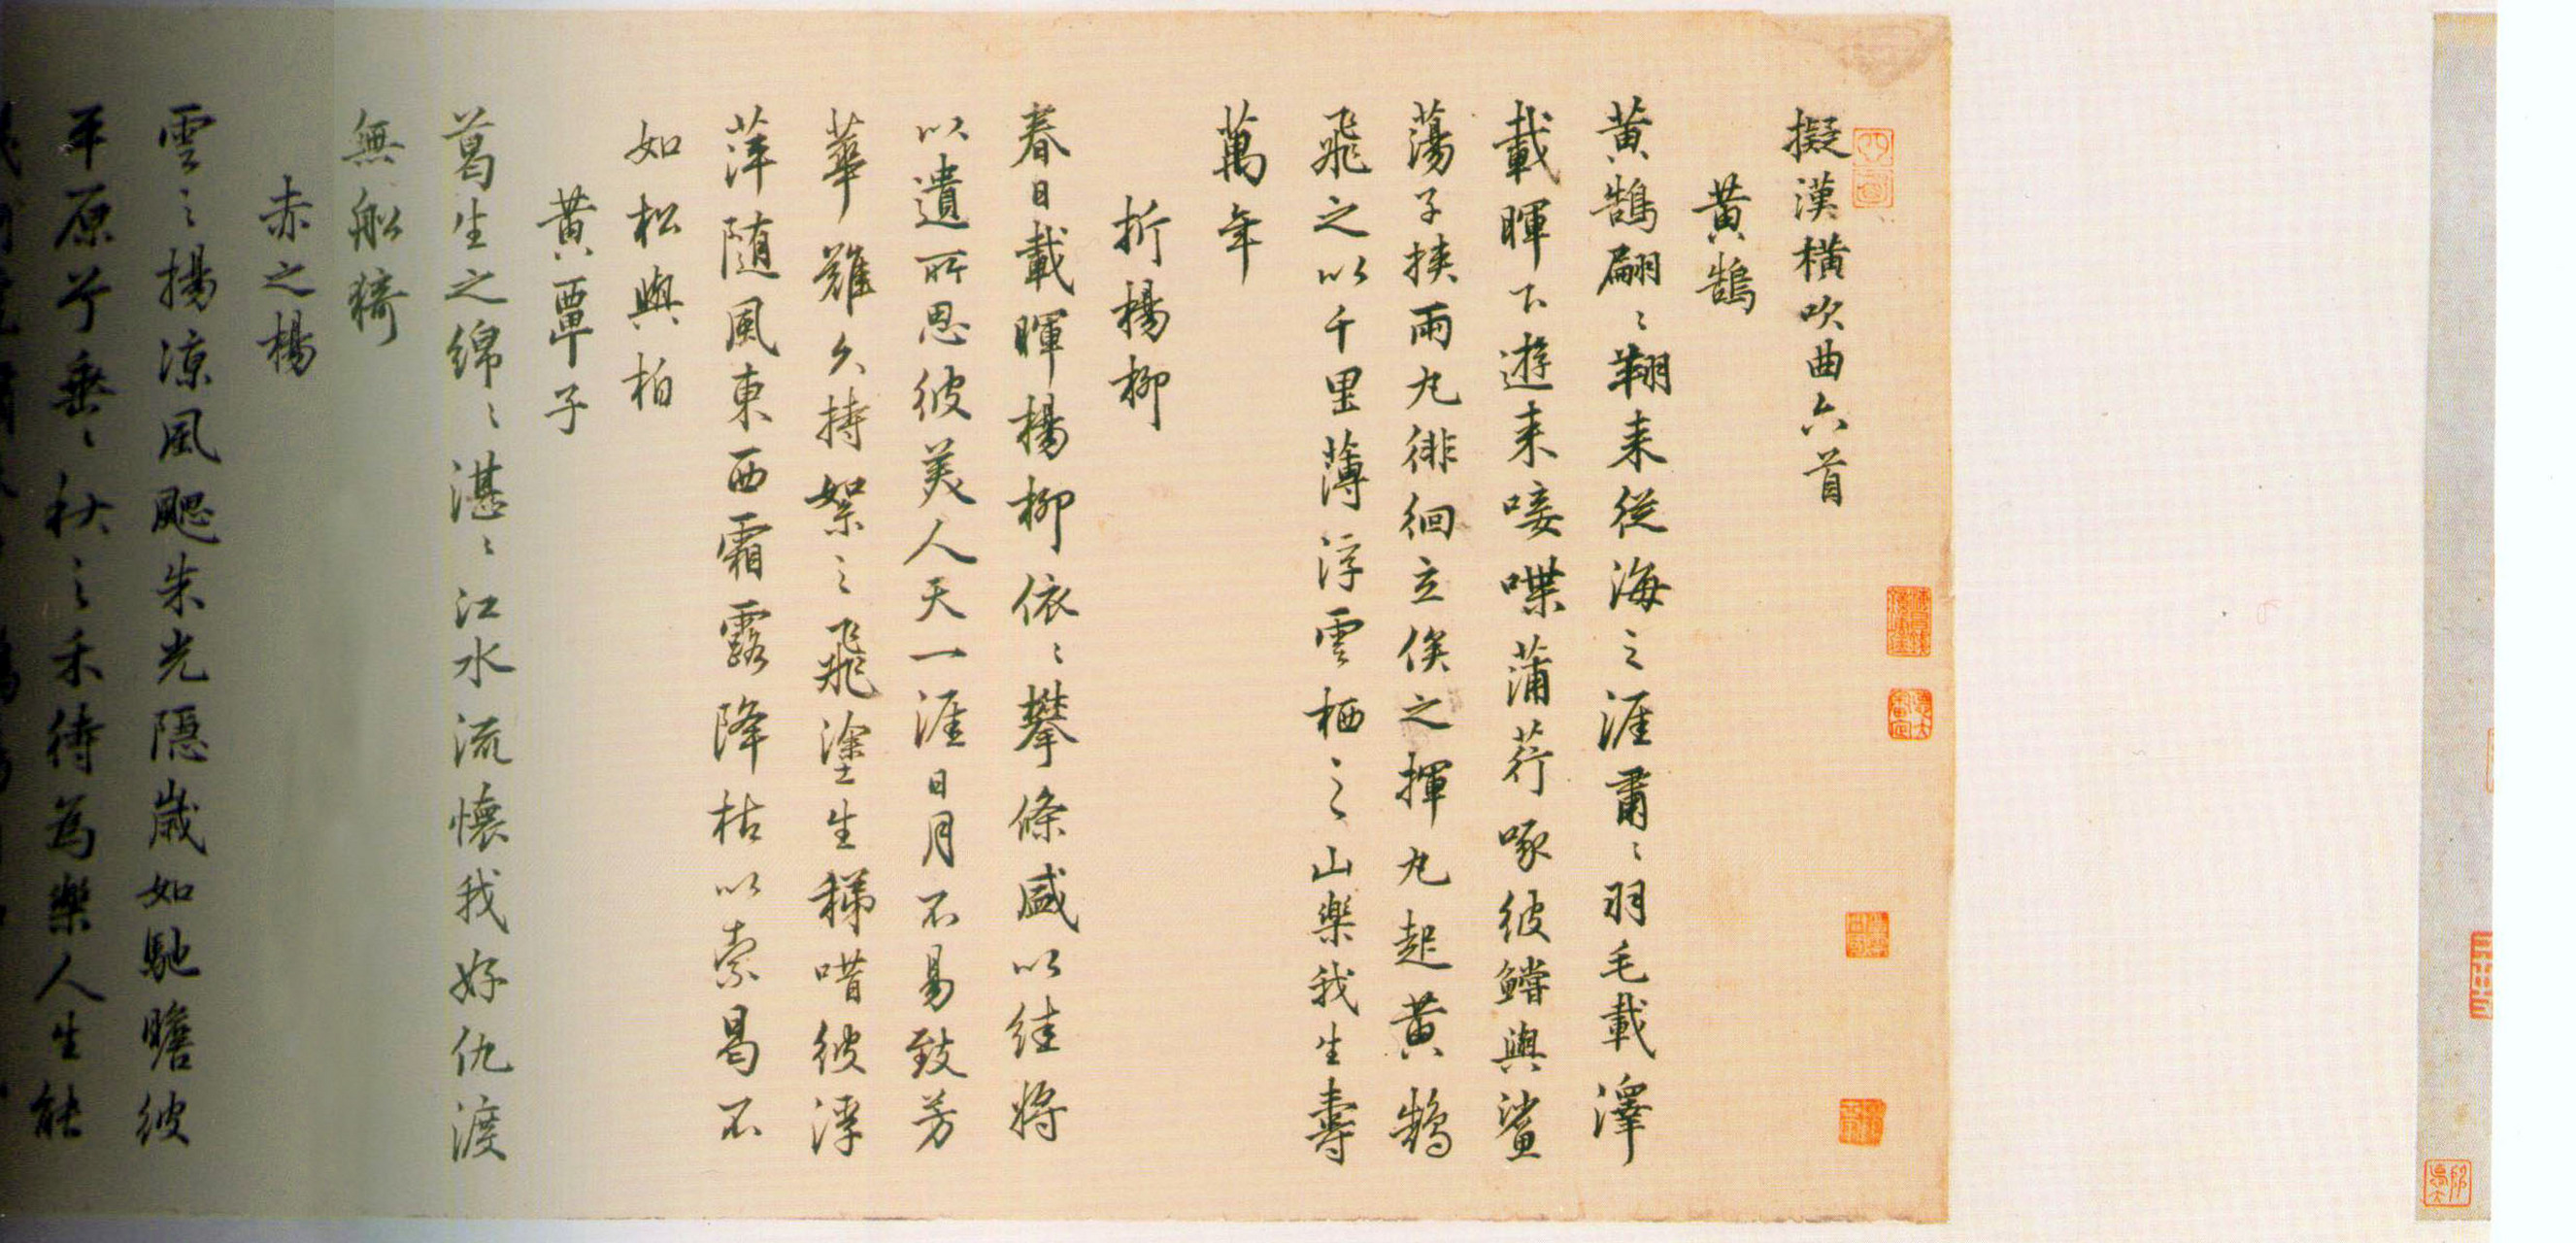 擬漢橫吹曲六首
黃鵠
黃鵠翩〻翔来從海之涯肅〻羽毛載澤
載暉下遊来唼喋蒲荇啄彼鱨與鯊
蕩子挾兩丸徘徊立俟之揮丸起黃鵠
飛之以千里薄浮雲栖之之山樂我生壽
萬年
折楊柳
春日載暉楊柳依〻攀條盛以結將
以遺所思彼美人天一涯日月不易致芳
華難久持絮之飛塗生稊惜彼浮
萍随風東西霜露降枯以索曷不
如松與柏
黃覃子
葛生之綿〻湛〻江水流懷我好仇渡
無船猗
赤之楊
雲之揚凉風颸朱光隱歲如馳瞻彼
平原兮垂〻秋之禾待為樂人生能